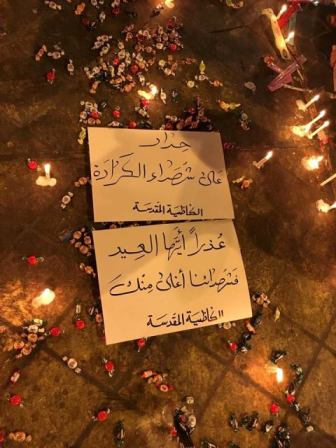 حداد
على شهداء الكرادة
الكاظمية المقدسة
عذراً أيها العيد
فشهدائنا أغلى منك
الكاظمية المقدسة